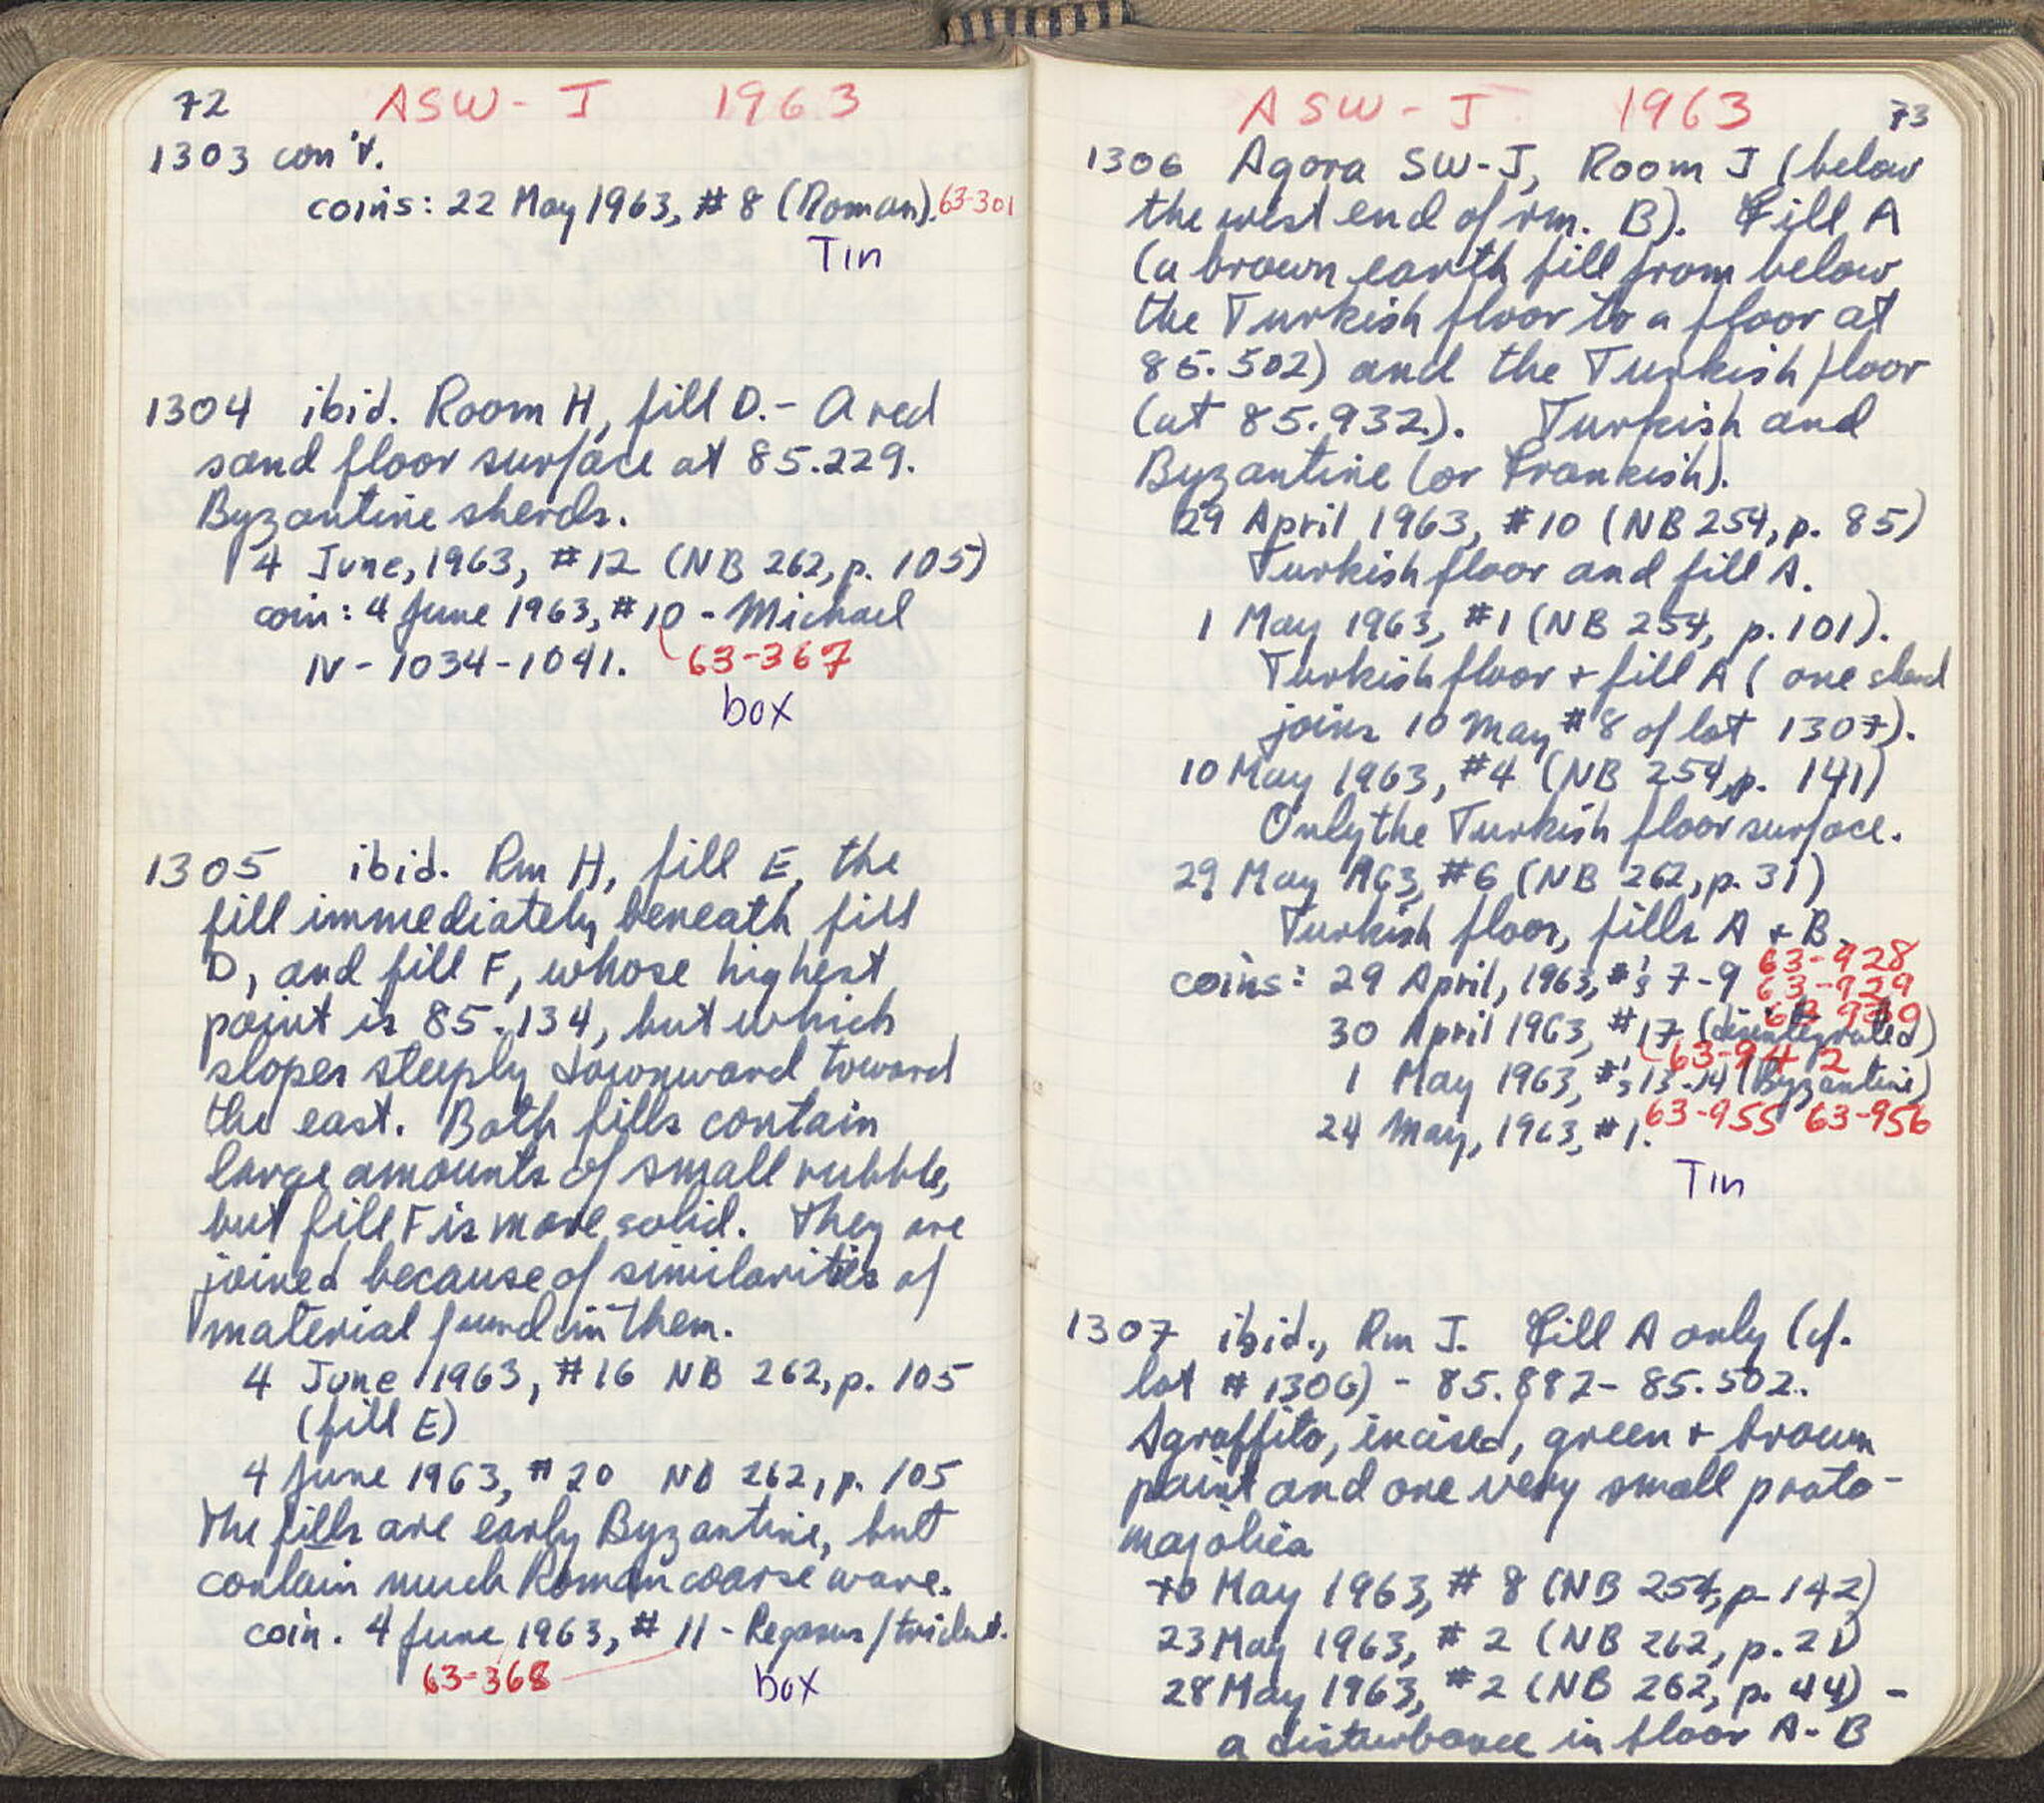 72 ASW - J 1963
1303 con't.
coins: 22 May 1963, #8 (Roman). 63-301
Tin
1304 ibid. Room H, fill D.- A red
sand floor surface at 85.229.
Byzantine sherds.
4 June, 1963, #12 (NB 262, p. 105)
coin: 4 June 1963, #10 - Michael
IV - 1034-1041. 63-367
box
1305 ibid. Rm H, fill E, the
fill immediately beneath fill
D, and fill F, whose highest
point is 85.134, but which
slopes steeply downward toward
the east. Both fills contain
large amounts of small rubble,
but fill F is more solid. They are
joined because of similarities of
material found in them.
4 June 1963, #16 NB 262, p. 105
(fill E)
4 June 1963, #20 NB 262, p. 105
The fills are early Byzantine, but
contain much Roman coarse ware.
coin. 4 June 1963, #11 - Pegasus/trident.
63-368 box
ASW - J 1963 73
1306 Agora SW-J, Room J (below
the west end of rm. B). Fill A
(a brown earth fill from below
the Turkish floor to a floor at
85.502) and the Turkish floor
(at 85.932). Turkish and
Byzantine (or Frankish).
29 April 1963, #10 (NB 254, p. 85)
Turkish floor and fill A.
1 May 1963, #1 (NB 254, p. 101).
Turkish floor + fill A (one sherd
joins 10 May #8 of lot 1307).
10 May 1963, #4 (NB 254, p. 141)
Only the Turkish floor surface.
29 May 1963, #6 (NB 262, p. 31)
Turkish floor, fills A + B.
63-928
coins: 29 April, 1963, #'s 7-9 63-929
30 April 1963, #17 (disintegrated)
63-942
1 May 1963, #'s 13-14 (Byzantine)
24 May, 1963, #1. 63-955 63-956
Tin
1307 ibid., Rm J. Fill A only (cf.
lot #1306) - 85.892-85.502.
Sgraffito, incised, green + brown
paint and one very small proto-
majolica
10 May 1963, #8 (NB 254, p. 142)
23 May 1963, #2 (NB 262, p. 21)
28 May 1963, #2 (NB 262, p. 44) -
a disturbance in floor A-B